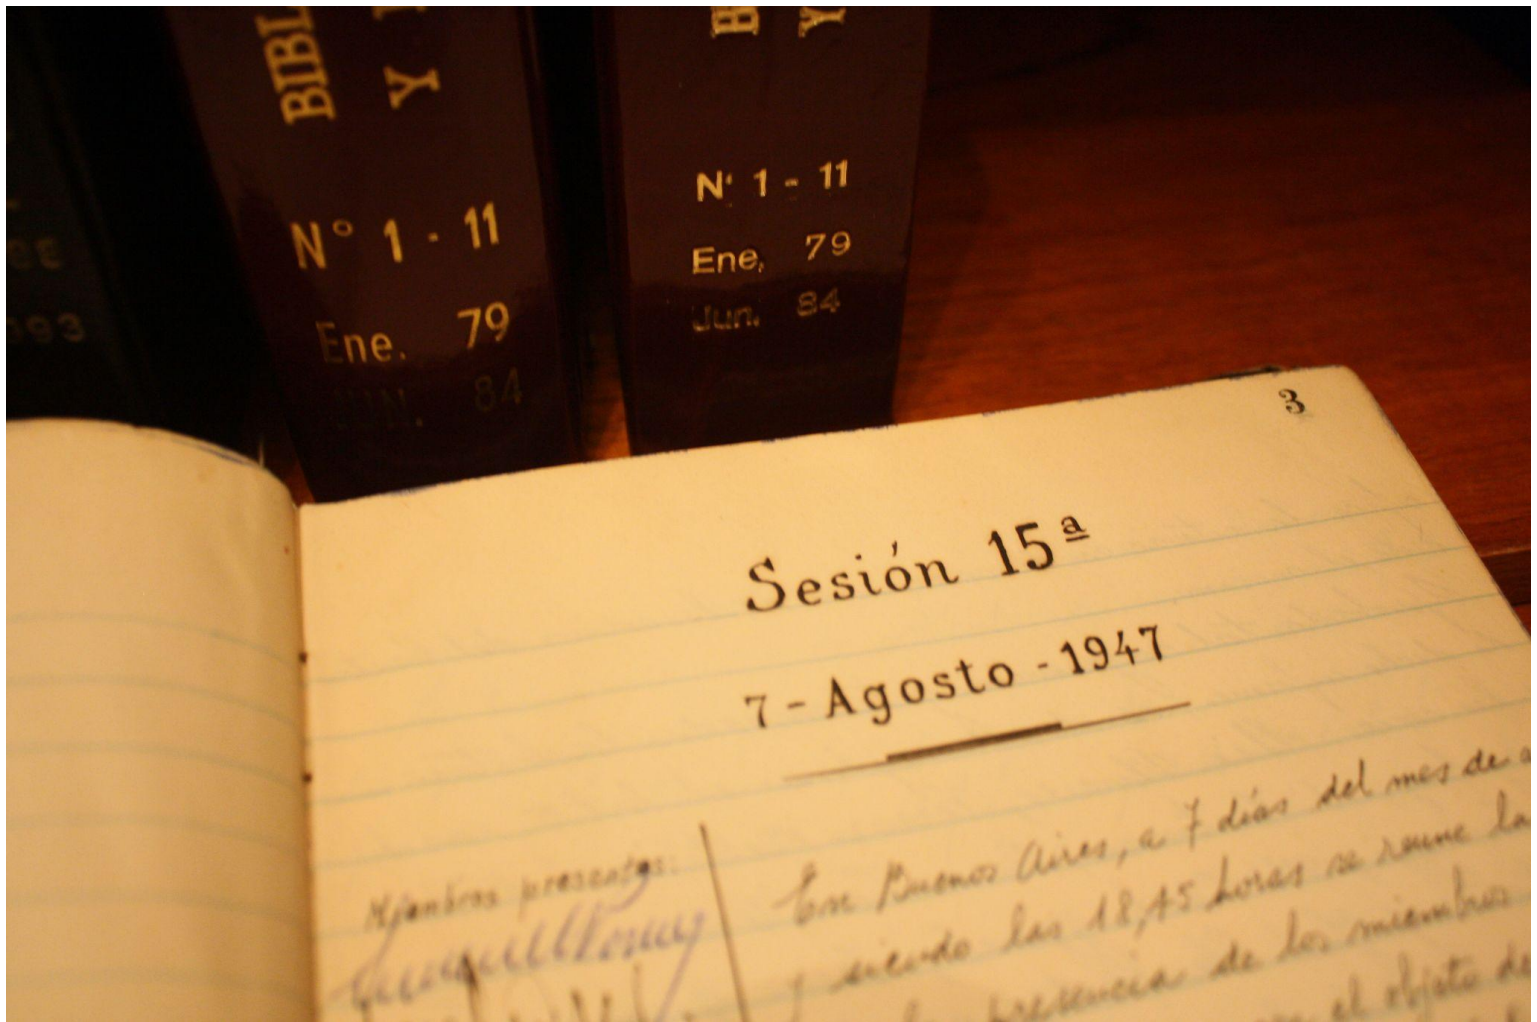 BIBL
Y
N° 1 - 11
Ene. 79
JUN. 84
B
Y
N° 1 - 11
Ene. 79
Jun. 84
993
3
Sesión 15ª
7 - Agosto - 1947
Miembros presentes:
En Buenos Aires, a 7 días del mes de a
y siendo las 18,45 horas se reune la
presencia de los miembros
el objeto de